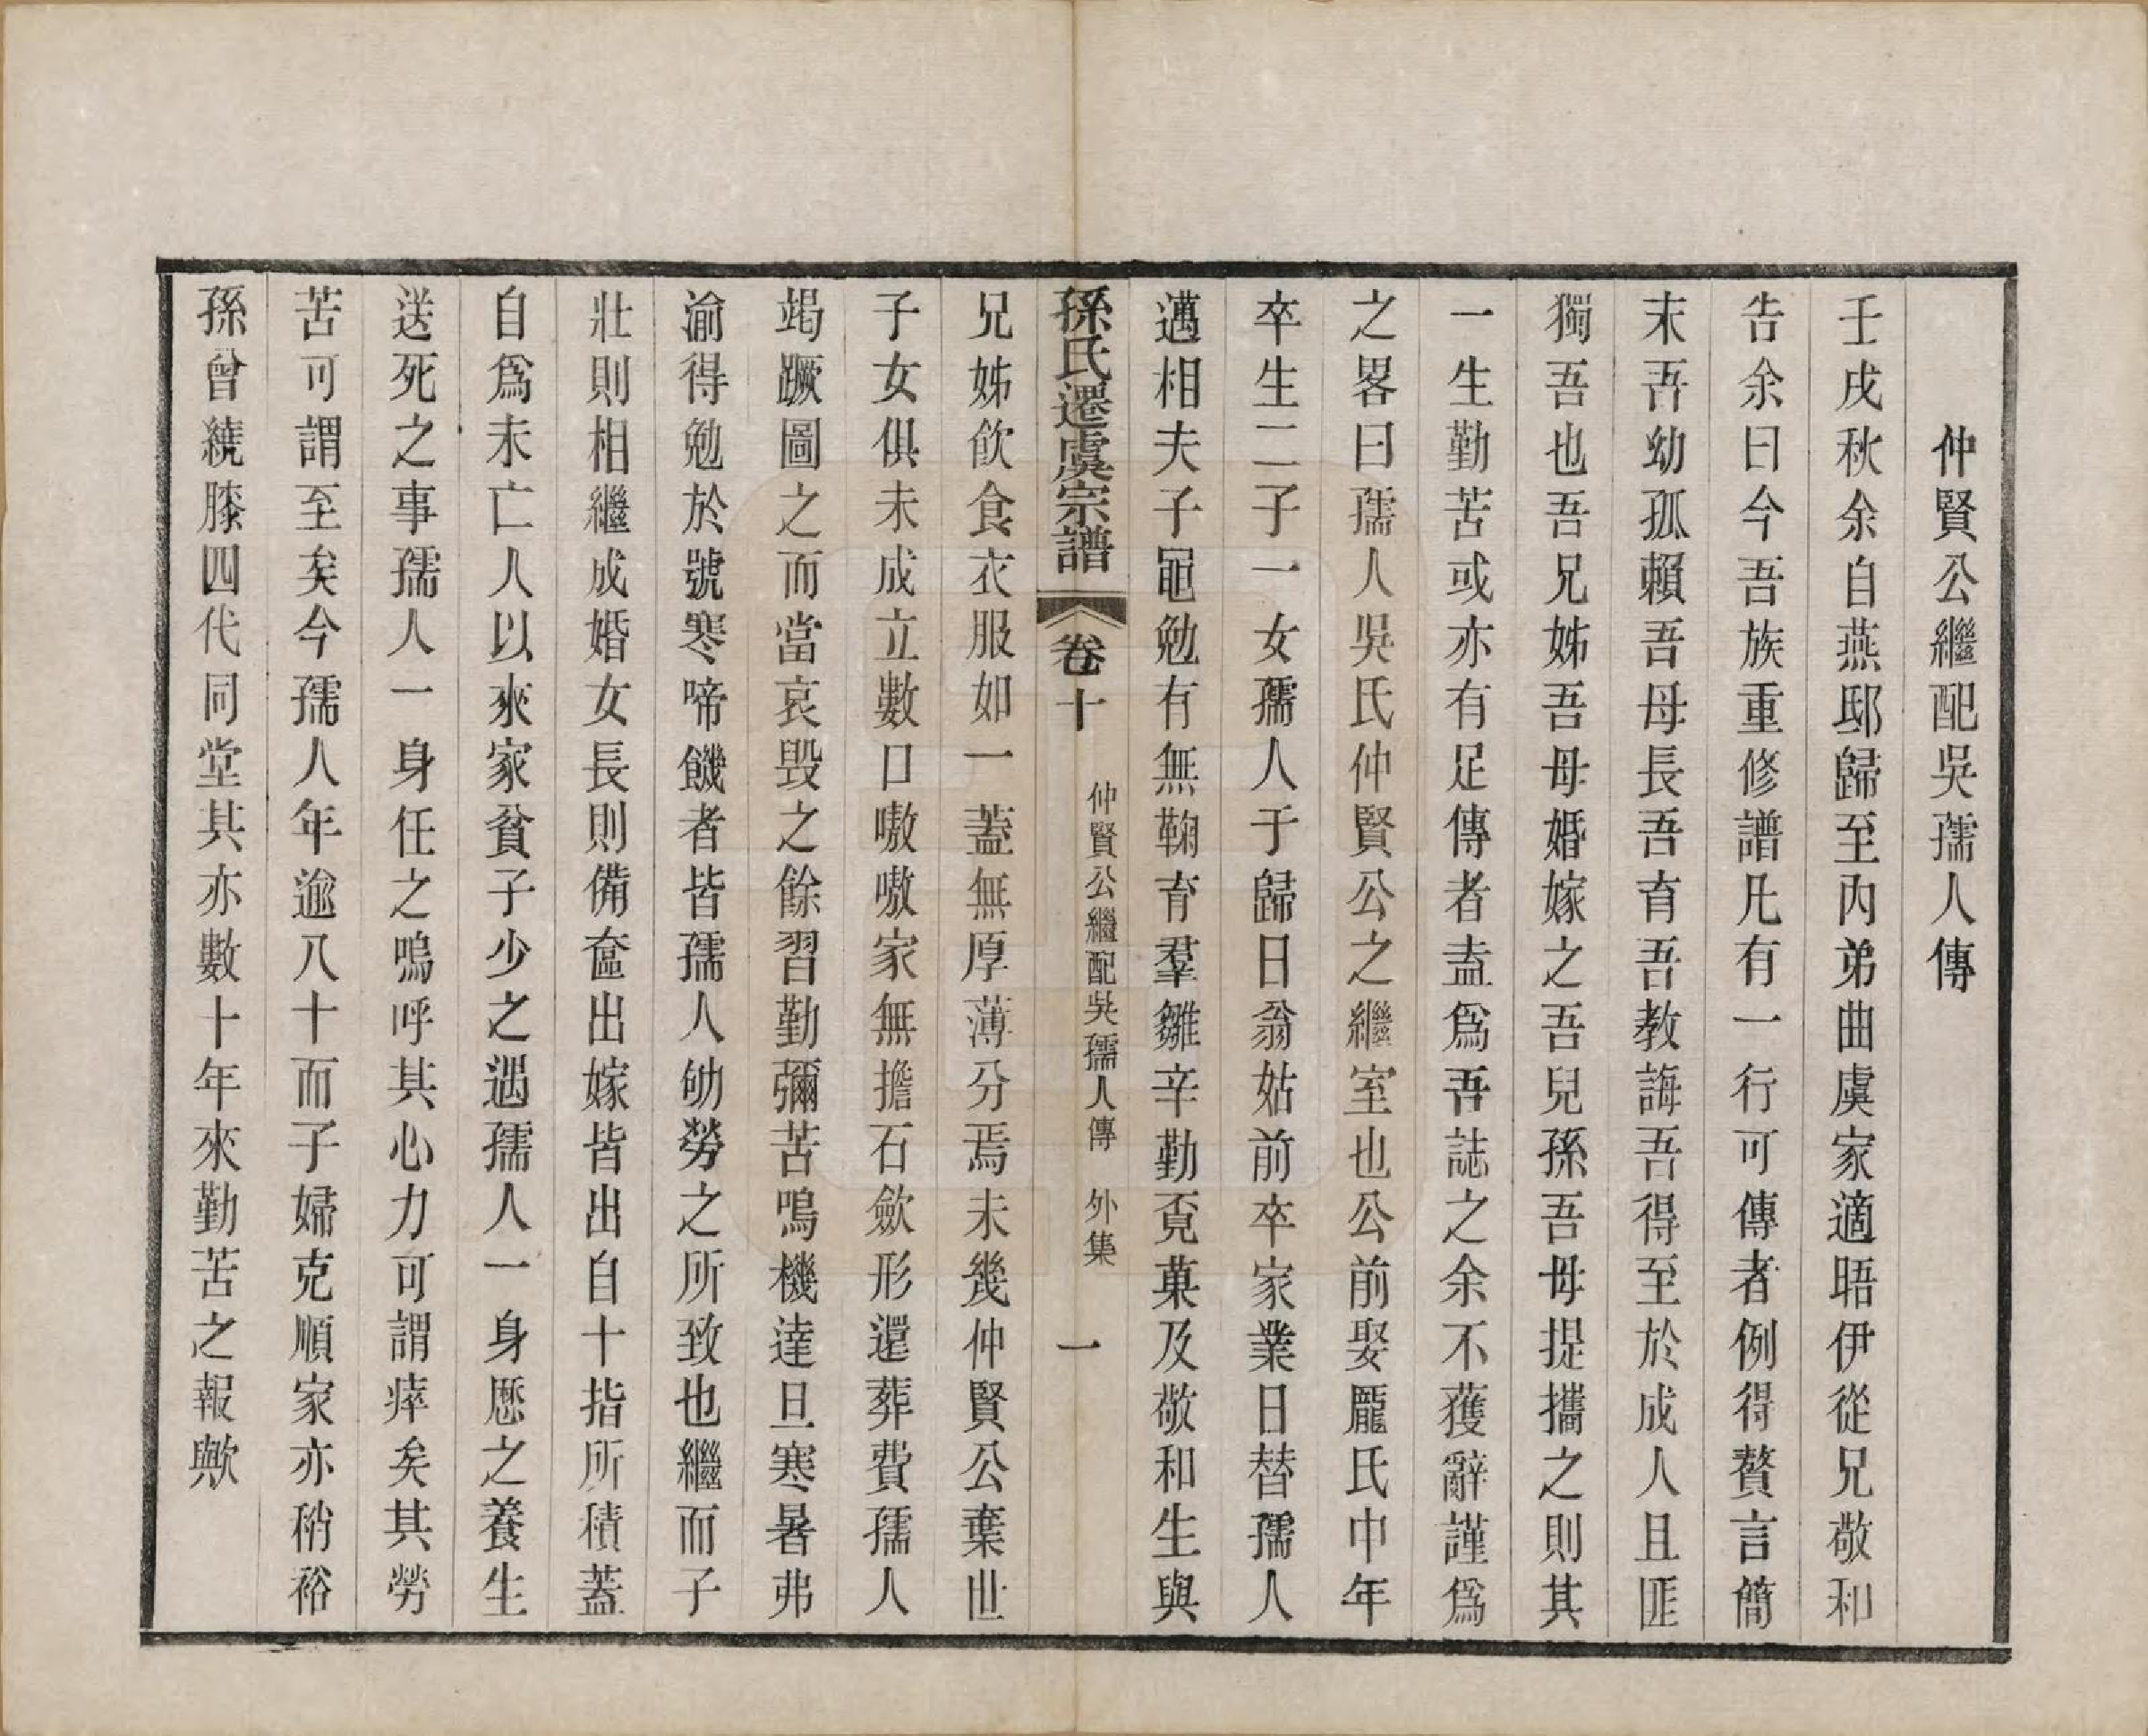 仲賢公繼配吳孺人傳
壬戌秋余自燕邸歸至內弟曲虞家適晤伊從兄敬和
告余曰今吾族重修譜凡有一行可傳者例得贅言簡
末吾幼孤賴吾母長吾育吾教誨吾得至於成人且匪
獨吾也吾兄姊吾母婚嫁之吾兒孫吾母提攜之則其
一生勤苦或亦有足傳者盍爲吾誌之余不獲辭謹爲
之畧曰孺人吳氏仲賢公之繼室也公前娶龎氏中年
卒生二子一女孺人于歸日翁姑前卒家業日替孺人
邁相夫子黽勉有無鞠育羣雛辛勤覔菓及敬和生與
孫氏遷虞宗譜 卷十 仲賢公繼配吳孺人傳 外集 一
兄姊飲食衣服如一蓋無厚薄分焉未幾仲賢公棄世
子女俱未成立數口嗷嗷家無擔石歛形還葬費孺人
竭蹶圖之而當哀毀之餘習勤彌苦鳴機達旦寒暑弗
渝得勉於號寒啼饑者皆孺人劬勞之所致也繼而子
壯則相繼成婚女長則備奩出嫁皆出自十指所積蓋
自爲未亡人以來家貧子少之遇孺人一身歷之養生
送死之事孺人一身任之嗚呼其心力可謂瘁矣其勞
苦可謂至矣今孺人年逾八十而子婦克順家亦稍裕
孫曾繞膝四代同堂其亦數十年來勤苦之報歟